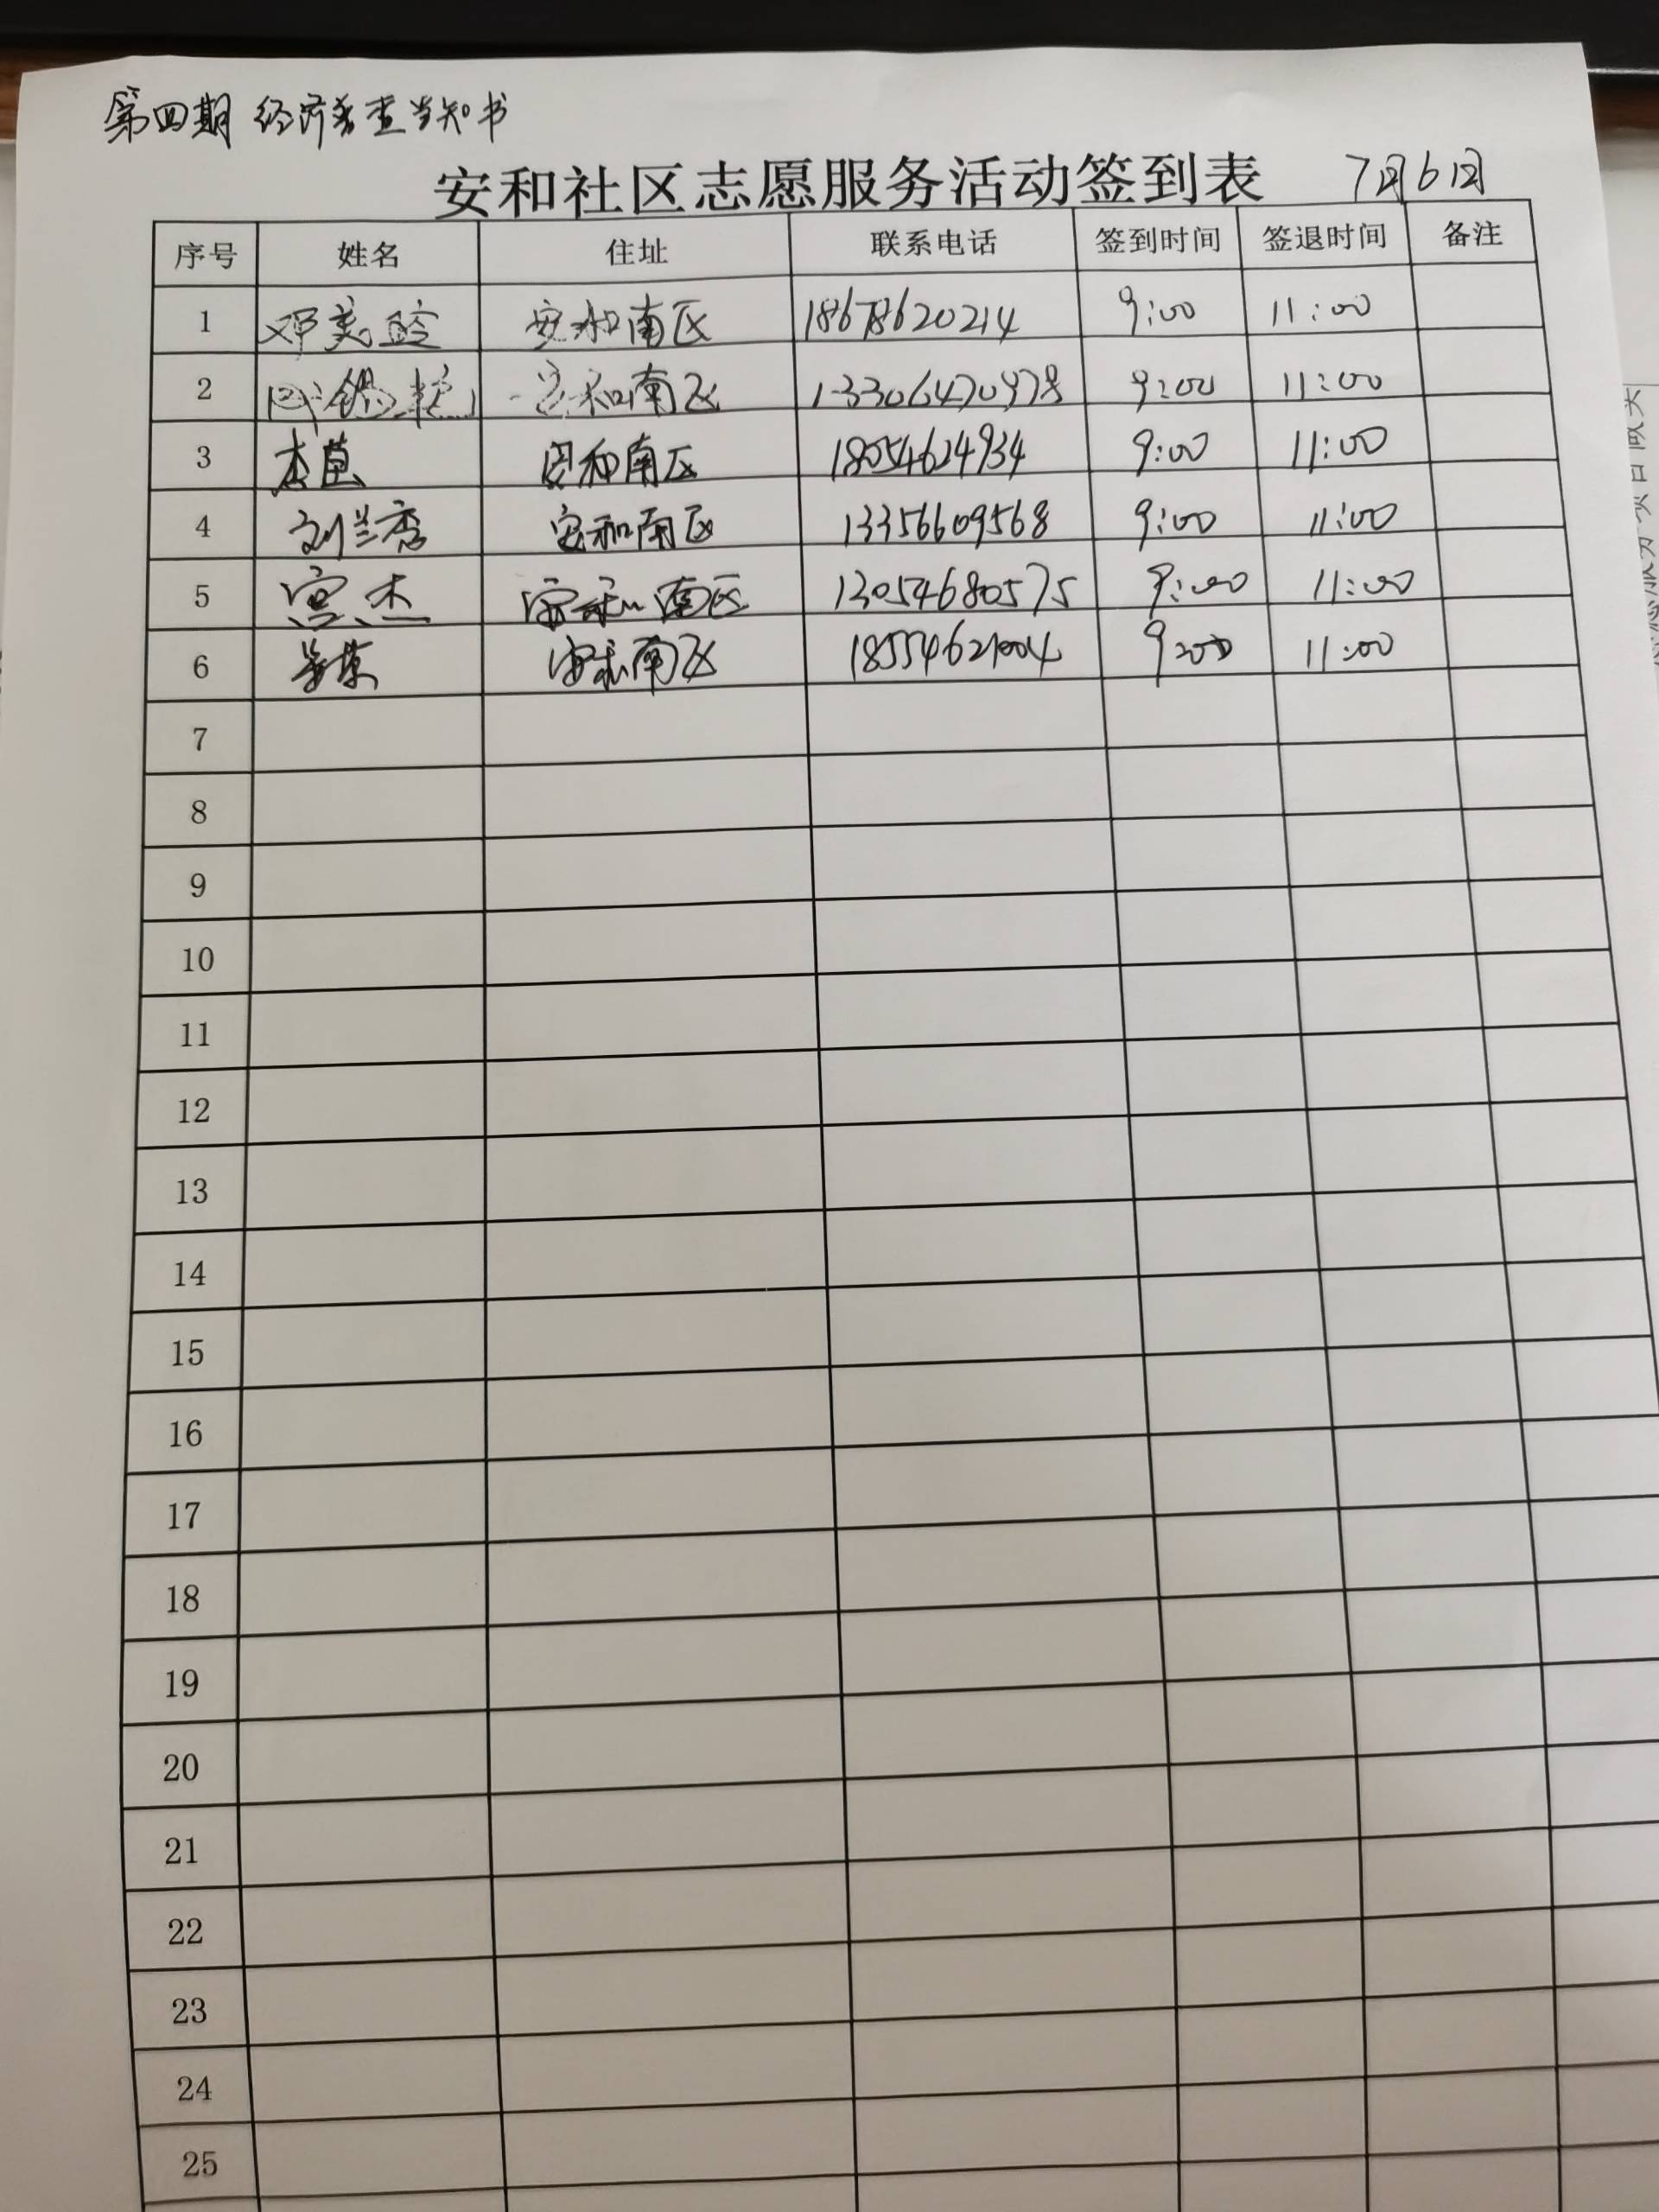 第四期 经济普查告知书
安和社区志愿服务活动签到表 7月6日
序号 姓名 住址 联系电话 签到时间 签退时间 备注
1 邓美玲 安和南区 18678620214 9:00 11:00
2 安和南区 13306470978 9:00 11:00
3 安和南区 18054624934 9:00 11:00
4 刘兰秀 安和南区 13356609568 9:00 11:00
5 宫杰 安和南区 13054680575 9:00 11:00
6 安和南区 18554621004 9:00 11:00
7
8
9
10
11
12
13
14
15
16
17
18
19
20
21
22
23
24
25